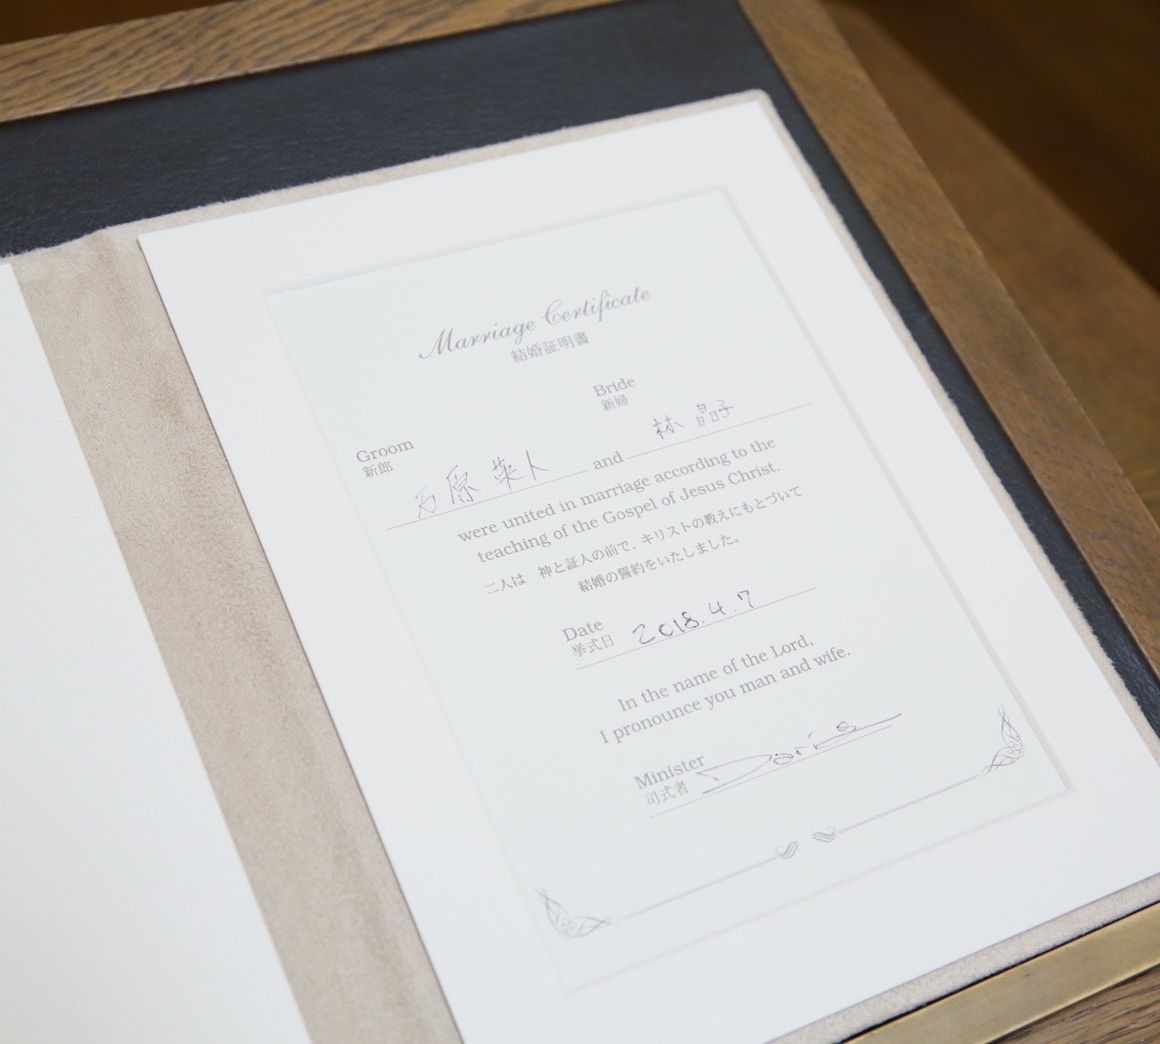 Marriage Certificate
結婚証明書
Bride
新婦
林 晶子
Groom
新郎
石原 英人
and
were united in marriage according to the
teaching of the Gospel of Jesus Christ.
二人は 神と証人の前で、キリストの教えにもとづいて
結婚の誓約をいたしました。
Date
挙式日
2018.4.7
In the name of the Lord,
I pronounce you man and wife.
Minister
司式者